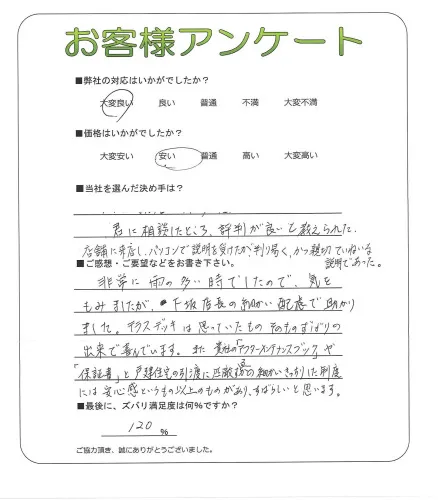 お客様アンケート
■弊社の対応はいかがでしたか？
大変良い 良い 普通 不満 大変不満
■価格はいかがでしたか？
大変安い 安い 普通 高い 大変高い
■当社を選んだ決め手は？
君に相談したところ、評判が良いと教えられた.
店舗に来店し、パソコンで説明を受けたが、判り易く、かつ親切ていねいな
説明であった。
■ご感想・ご要望などをお書き下さい。
非常に雨の多い時でしたので、気を
もみましたが、下坂店長の細かい配慮で助かり
ました。テラスデッキは思っていたもの そのものずばりの
出来で喜んでいます。また 貴社の「アフターメンテナンスブック」や
「保証書」と戸建住宅の引渡に匹敵する細かいきっちりした制度
には安心感というもの以上のものがあり、すばらしいと思います。
■最後に、ズバリ満足度は何%ですか？
120 %
ご協力頂き、誠にありがとうございました。